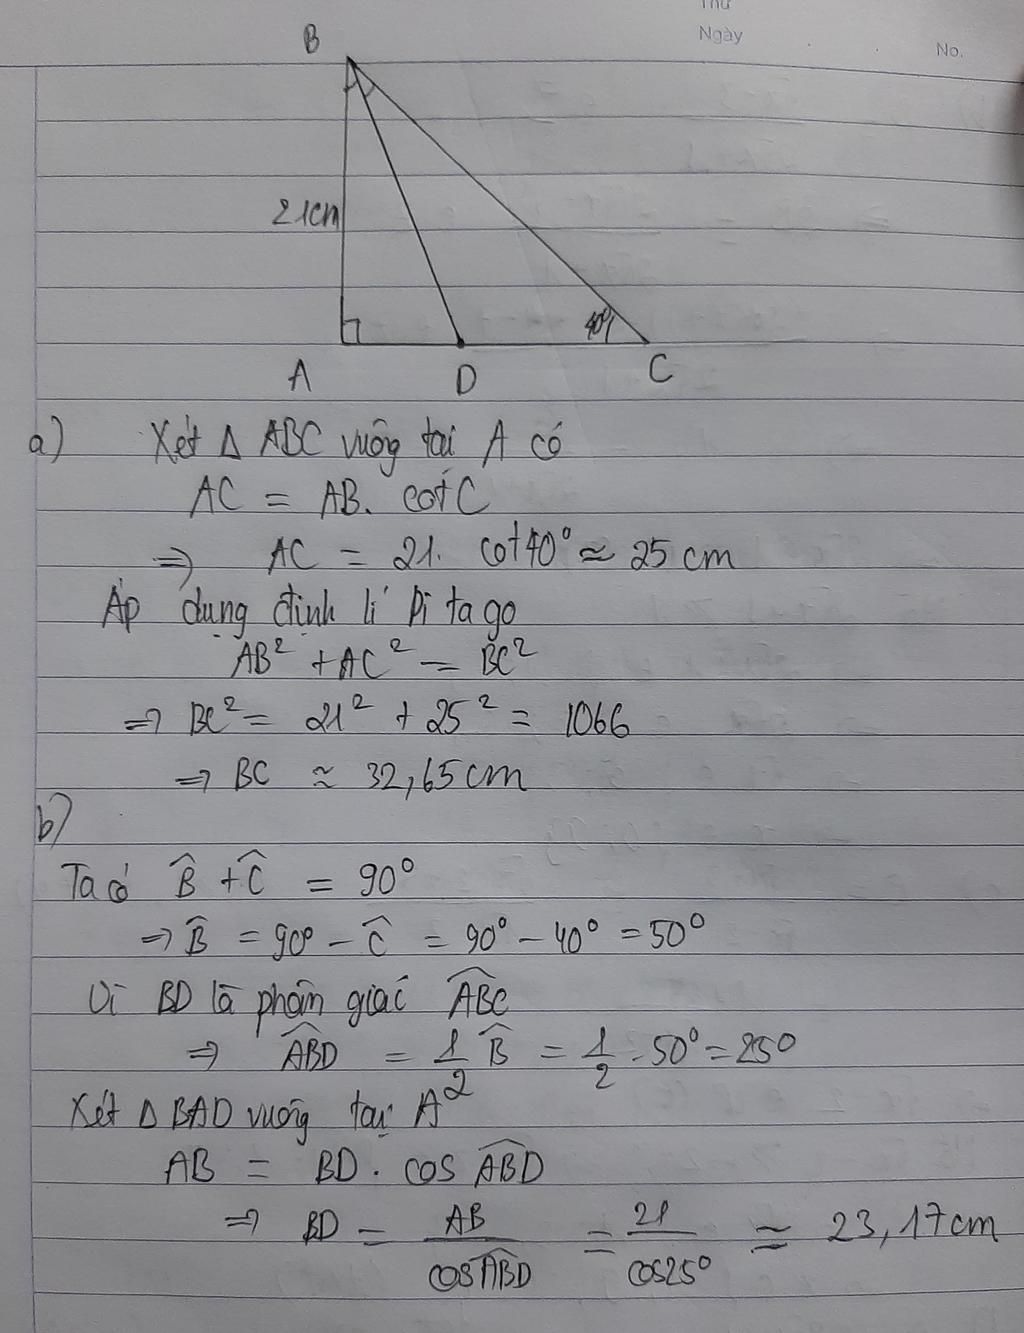 Thứ
Ngày
No.
B
21cm
40°
A
D
C
a) Xét Δ ABC vuông tại A có
AC = AB. cot C
=> AC = 21. cot40° ≈ 25 cm
Áp dụng định lí Pi ta go
AB² + AC² = BC²
=> BC² = 21² + 25² = 1066
=> BC ≈ 32,65cm
b)
Ta có B̂ + Ĉ = 90°
=> B̂ = 90° - Ĉ = 90° - 40° = 50°
Vì BD là phân giác \widehat{ABC}
=> \widehat{ABD} = 1/2 B̂ = 1/2 . 50° = 25°
Xét Δ BAD vuông tại A
AB = BD . cos \widehat{ABD}
=> BD = AB/cos\widehat{ABD} = 21/cos25° ≈ 23,17cm